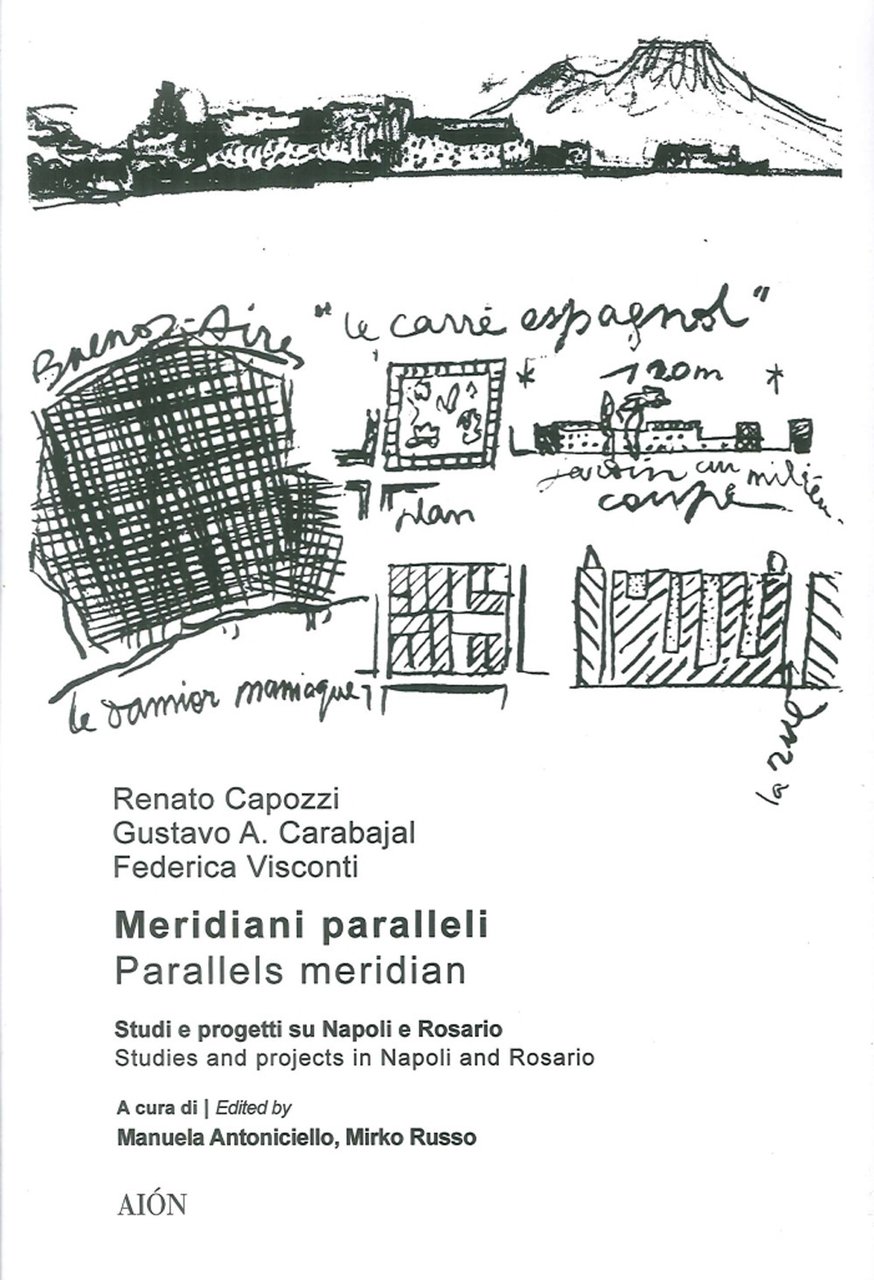 Buenos-Aires "le carré espagnol"
120m
plan
jardin au milieu
coupe
le damier maniaque
la rue
Renato Capozzi
Gustavo A. Carabajal
Federica Visconti
Meridiani paralleli
Parallels meridian
Studi e progetti su Napoli e Rosario
Studies and projects in Napoli and Rosario
A cura di | Edited by
Manuela Antoniciello, Mirko Russo
AIÓN